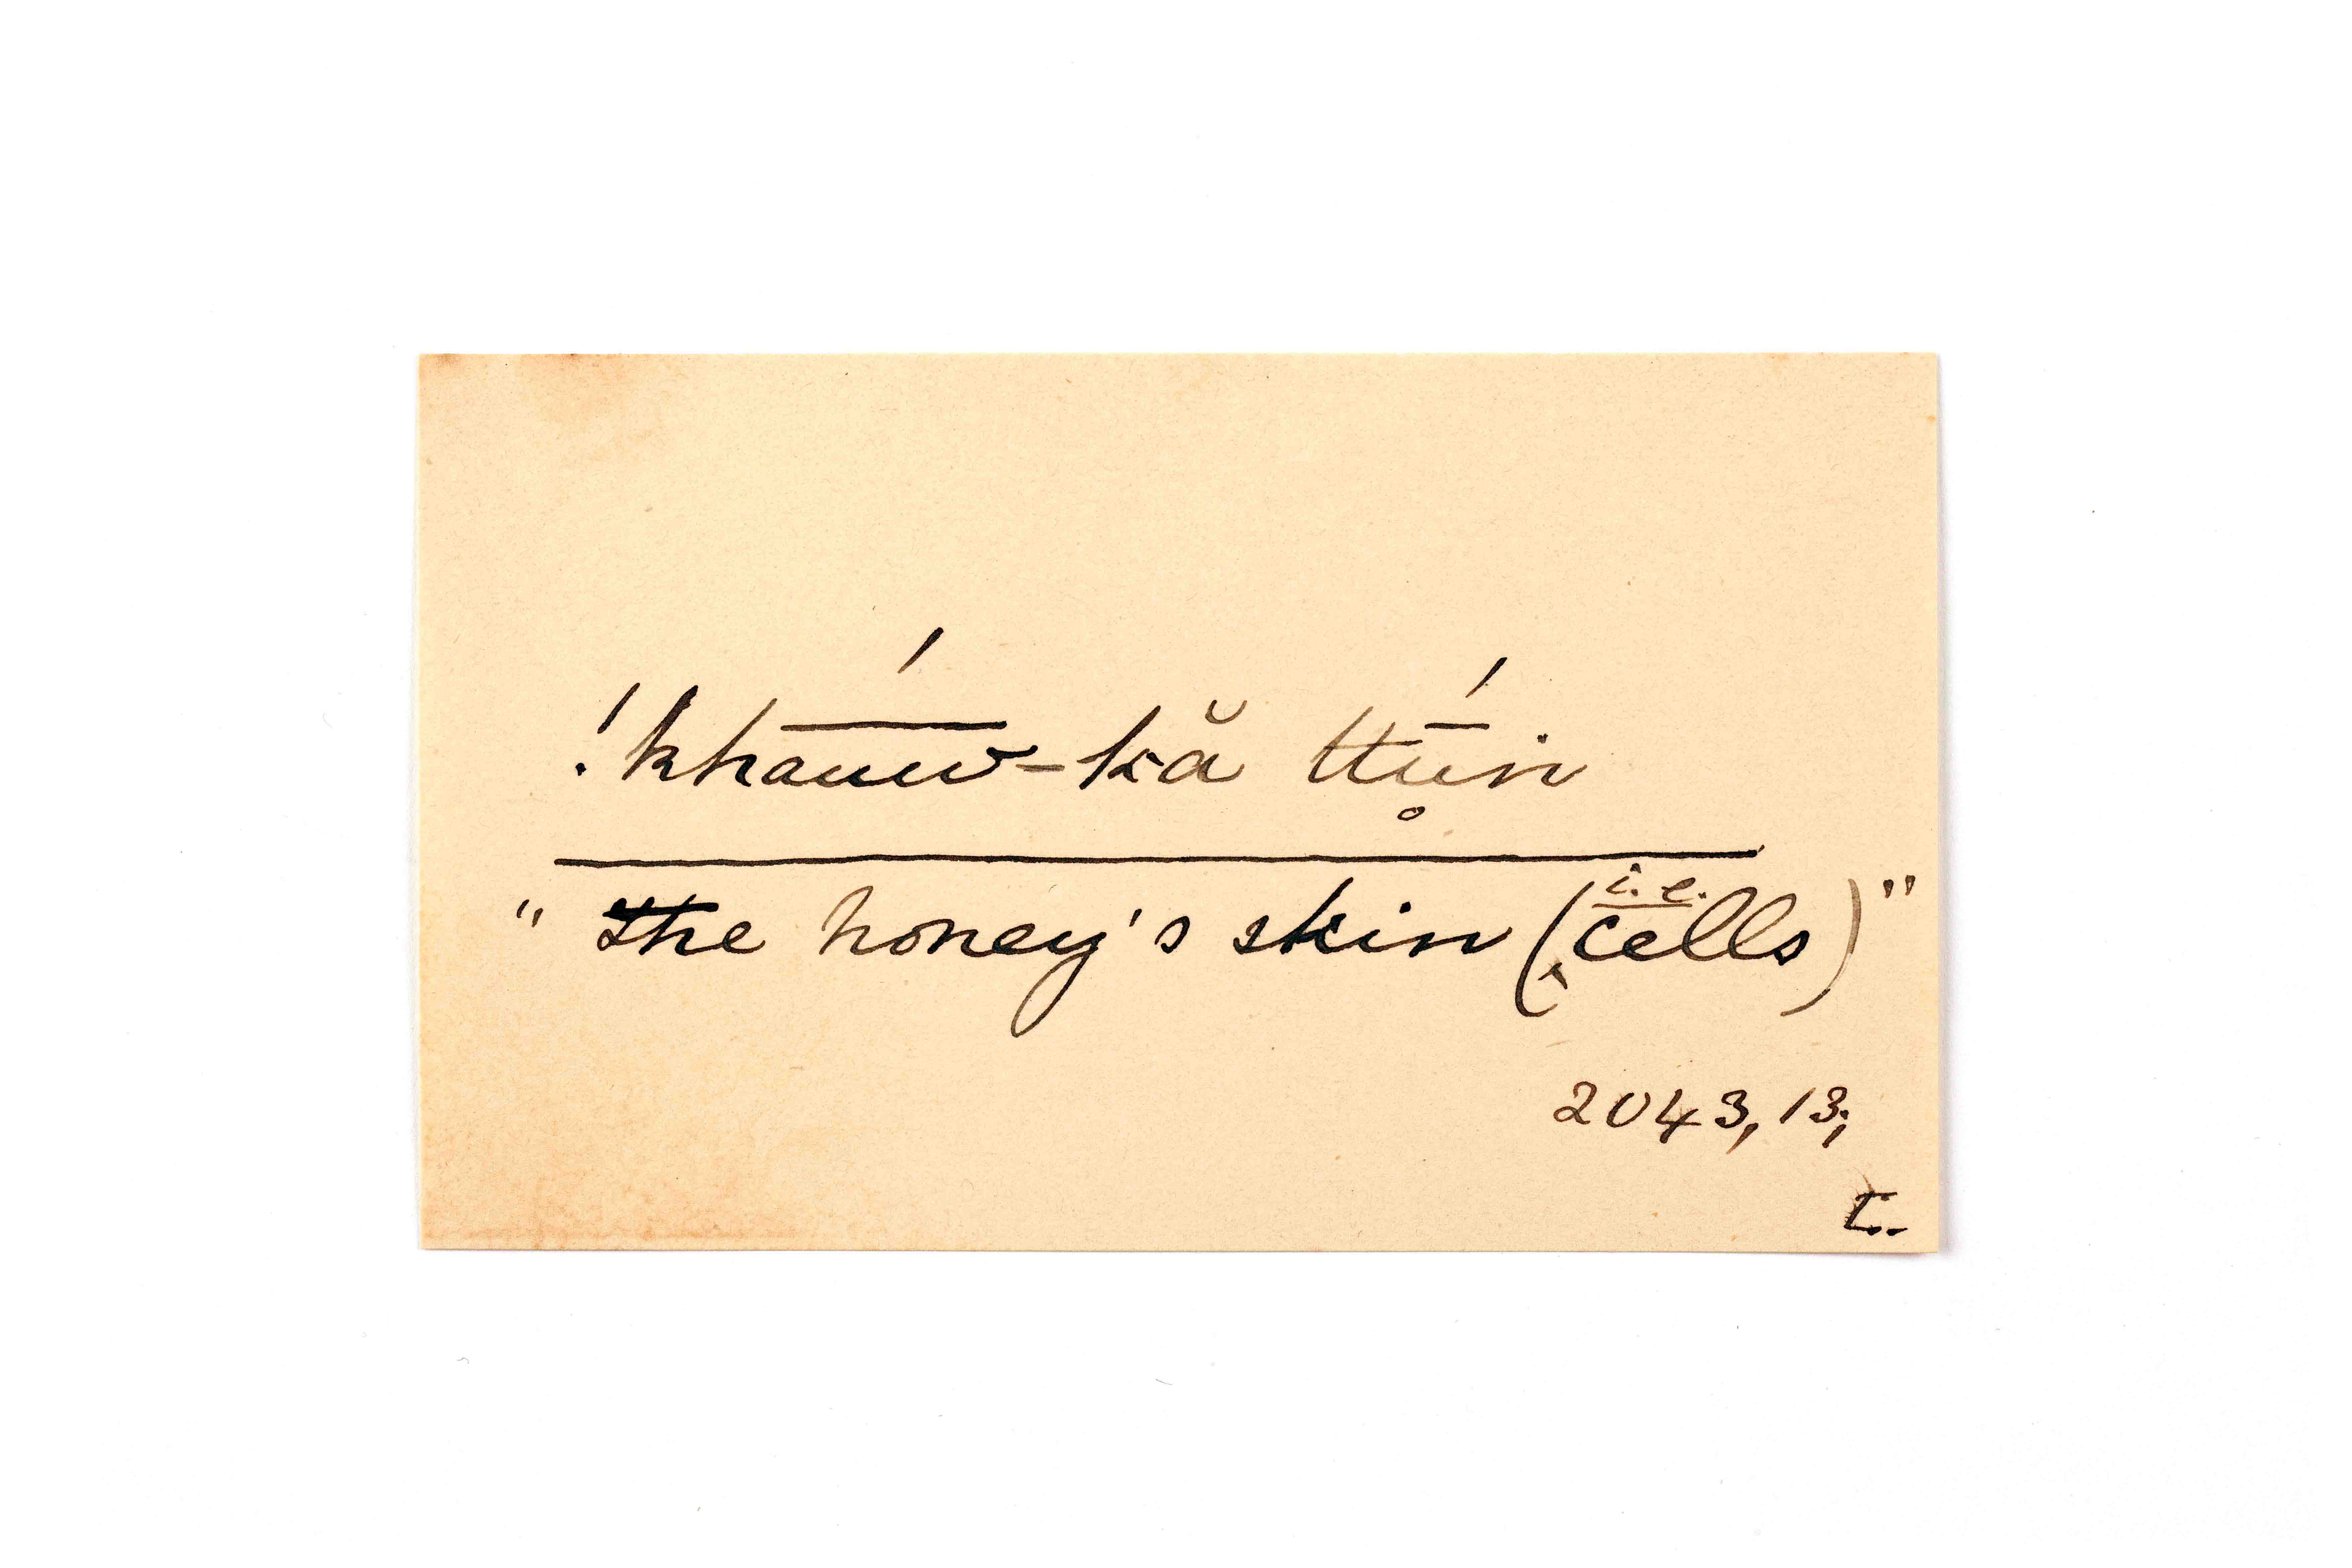 !kháuw-kă ttū́n̥
"the honey's skin (i.e. cells)"
2043, 13;
L.